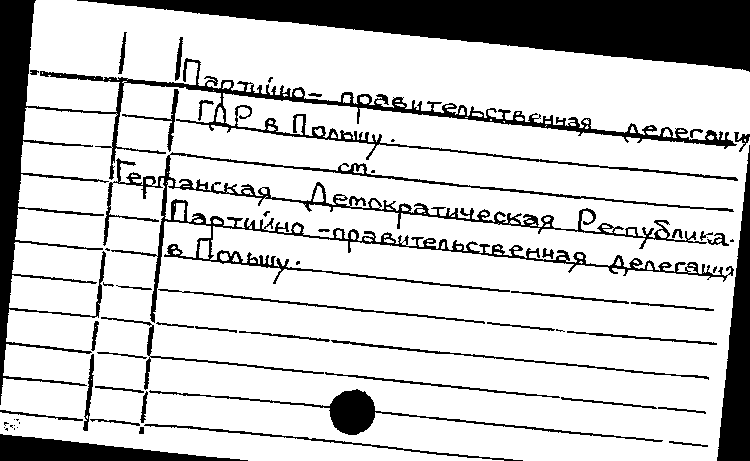 Партийно- правительственная делегация
ГДР в Польшу.
см.
Германская Демократическая Республика.
Партийно-правительственная делегация
в Польшу.